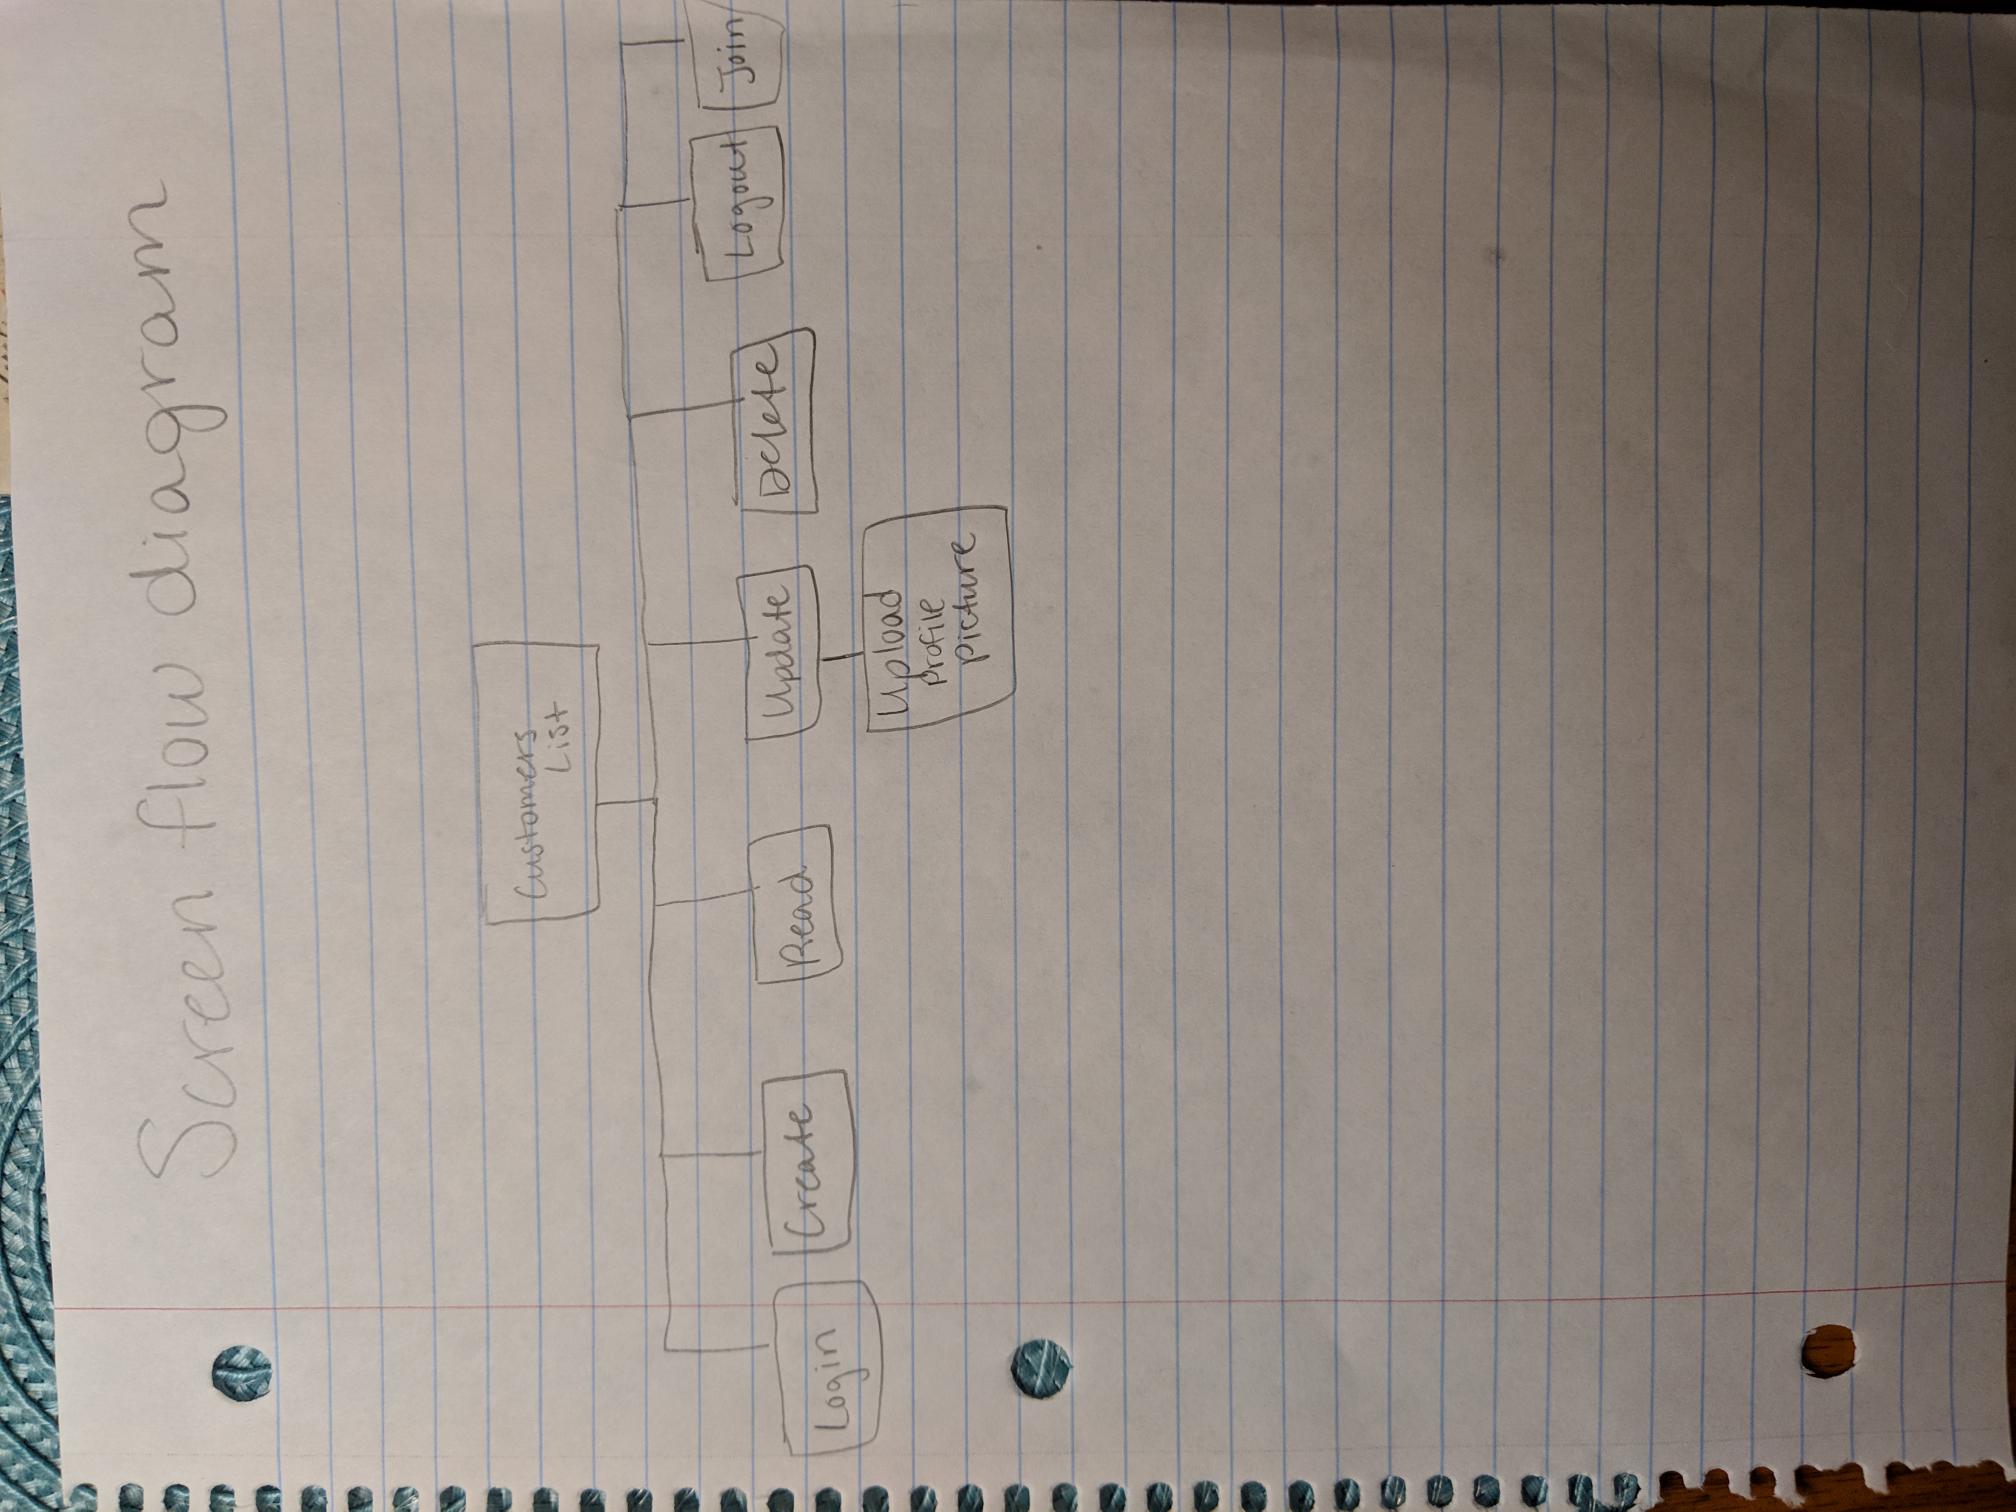 Screen flow diagram
Customers
List
Login
Create
Read
Update
Delete
Logout
Join
Upload
profile
picture